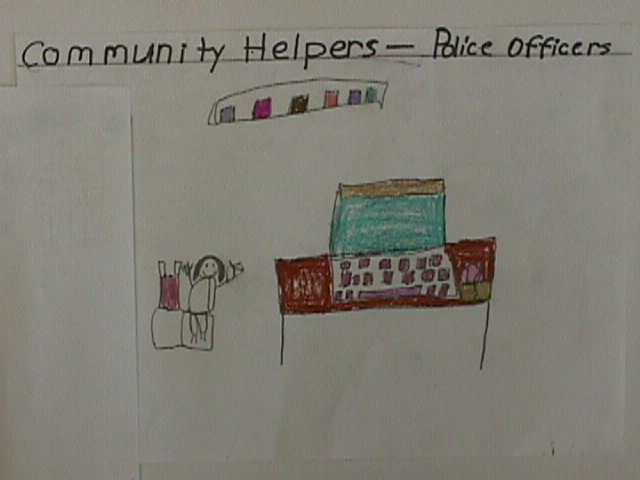 Community Helpers — Police Officers